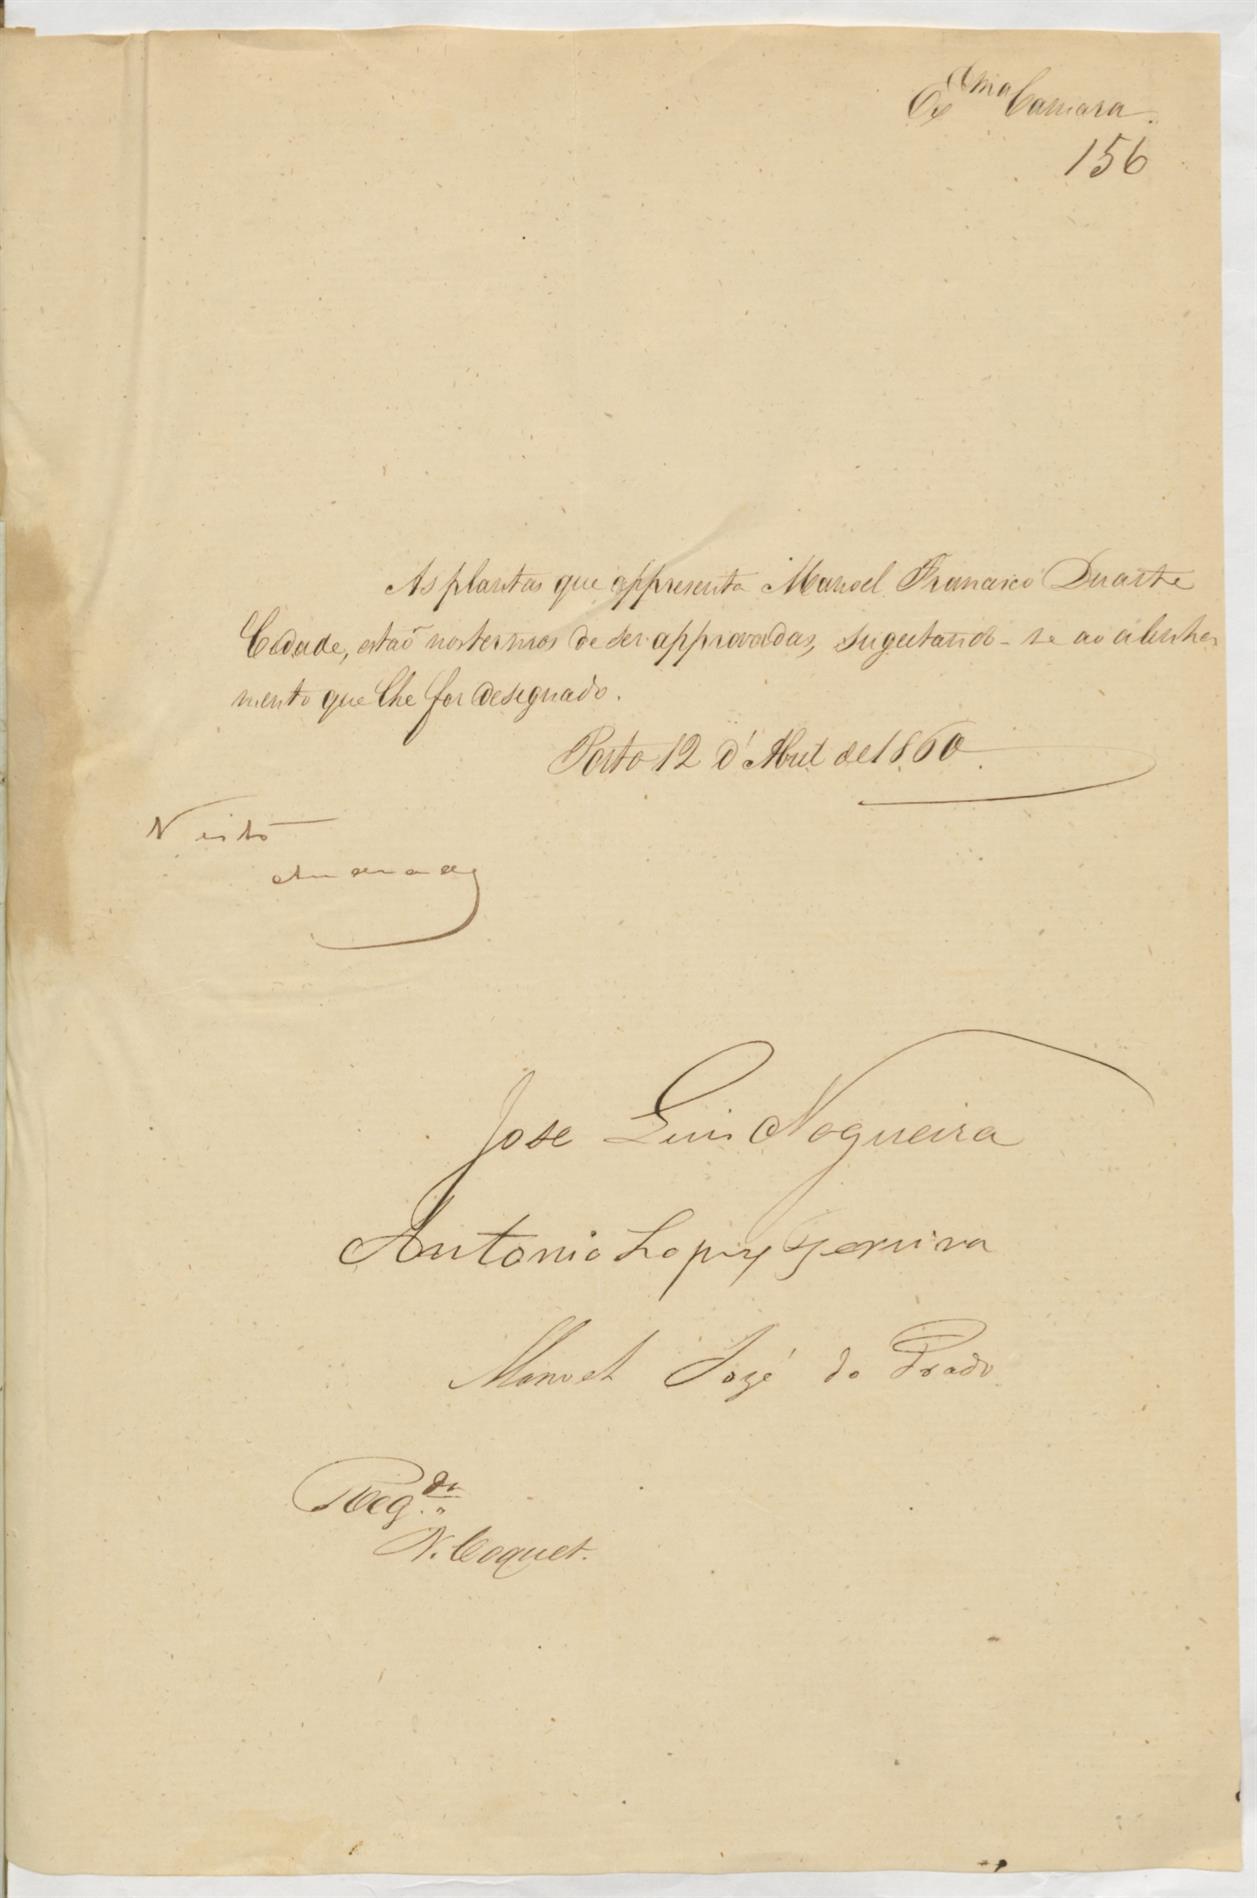 Ex.ma Camara.
156
As plantas que appresenta Manoel Francisco Duarte
Cidade, estaõ nos termos de ser approvadas, sugeitando-se ao alinha
mento que lhe for designado.
Porto 12 d'Abril de 1860.
Visto
Andrade
Jose Luis Nogueira
Antonio Lopes Ferreira
Manoel José do Prado
Reg.do
N. Coquet.